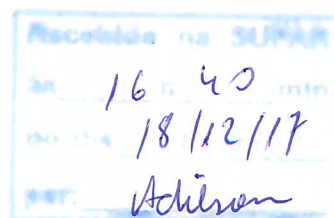 Recebido na SUPAR
às 16 h 40 min
no dia 18/12/17
por: Adilson